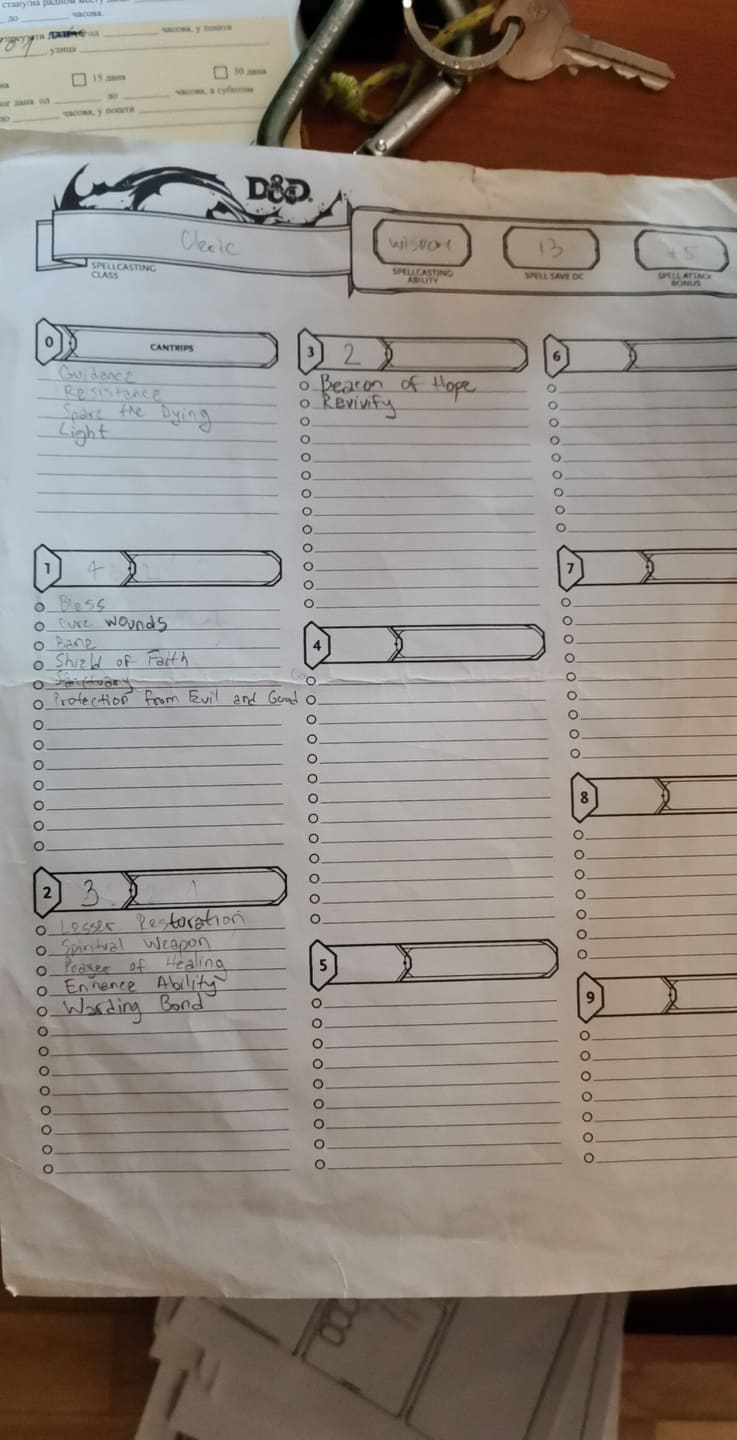 стану/на радном месту
до ____ часова.
преузети ____ од ____ часова, у пошти
____, улица ____
☐ 15 дана ☐ 30 дана
ог дана од ____ до ____ часова, а суботом
по ____ часова, у пошти
D&D
Cleric
SPELLCASTING
CLASS
WISDOM
SPELLCASTING
ABILITY
13
SPELL SAVE DC
+5
SPELL ATTACK
BONUS
0 CANTRIPS
Guidance
Resistance
Spare the Dying
Light
1 4
Bless
Cure Wounds
Bane
Shield of Faith
Sanctuary
Protection from Evil and Good
2 3 1
Lesser Restoration
Spiritual Weapon
Prayer of Healing
Enhance Ability
Warding Bond
3 2
Beacon of Hope
Revivify
4
5
6
7
8
9